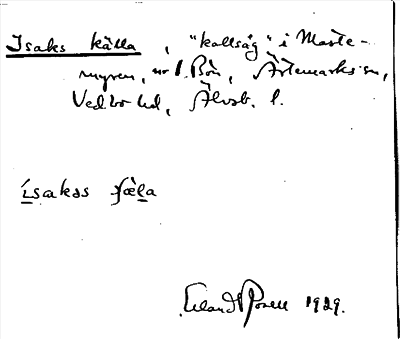 Isaks källa, "kallsåg" i Maste-
myren, nr 1. Bön, Ärtemarks sn,
Vedbo hd, Älvsb. l.
ísakəs ʃæ̀la
Erland Rosell 1929.